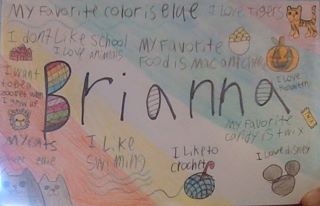 My favorite color is blue I love Tigers
I don't Like school
I love animals
My Favorite
Food is mac and chee
I want
to be a
when
I grow up
I love
Brianna
My favorite
candy is twix
My cats
I Like
swiming
I Like to
crochet
I Love disney